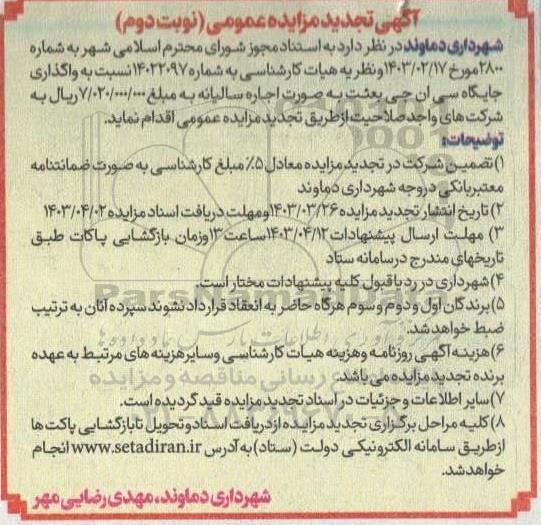 آگهی تجدید مزایده عمومی (نوبت دوم)
شهرداری دماوند در نظر دارد به استناد مجوز شورای محترم اسلامی شهر به شماره
۲۸۰۰ مورخ ۱۴۰۳/۰۲/۱۷ و نظریه هیات کارشناسی به شماره ۱۴۰۲۲۰۹۷ نسبت به واگذاری
جایگاه سی ان جی بعثت به صورت اجاره سالیانه به مبلغ ۷/۰۲۰/۰۰۰/۰۰۰ ریال به
شرکت های واجد صلاحیت از طریق تجدید مزایده عمومی اقدام نماید.
توضیحات:
۱) تضمین شرکت در تجدید مزایده معادل ۵٪ مبلغ کارشناسی به صورت ضمانتنامه
معتبر بانکی در وجه شهرداری دماوند
۲) تاریخ انتشار تجدید مزایده ۱۴۰۳/۰۳/۲۶ و مهلت دریافت اسناد مزایده ۱۴۰۳/۰۴/۰۲
۳) مهلت ارسال پیشنهادات ۱۴۰۳/۰۴/۱۲ ساعت ۱۳ و زمان بازگشایی پاکات طبق
تاریخهای مندرج در سامانه ستاد
۴) شهرداری در رد یا قبول کلیه پیشنهادات مختار است.
۵) برندگان اول و دوم و سوم هرگاه حاضر به انعقاد قرارداد نشوند سپرده آنان به ترتیب
ضبط خواهد شد.
۶) هزینه آگهی روزنامه و هزینه هیات کارشناسی و سایر هزینه های مرتبط به عهده
برنده تجدید مزایده می باشد.
۷) سایر اطلاعات و جزئیات در اسناد تجدید مزایده قید گردیده است.
۸) کلیه مراحل برگزاری تجدید مزایده از دریافت اسناد و تحویل تا بازگشایی پاکت ها
از طریق سامانه الکترونیکی دولت (ستاد) به آدرس www.setadiran.ir انجام
خواهد شد.
شهرداری دماوند، مهدی رضایی مهر